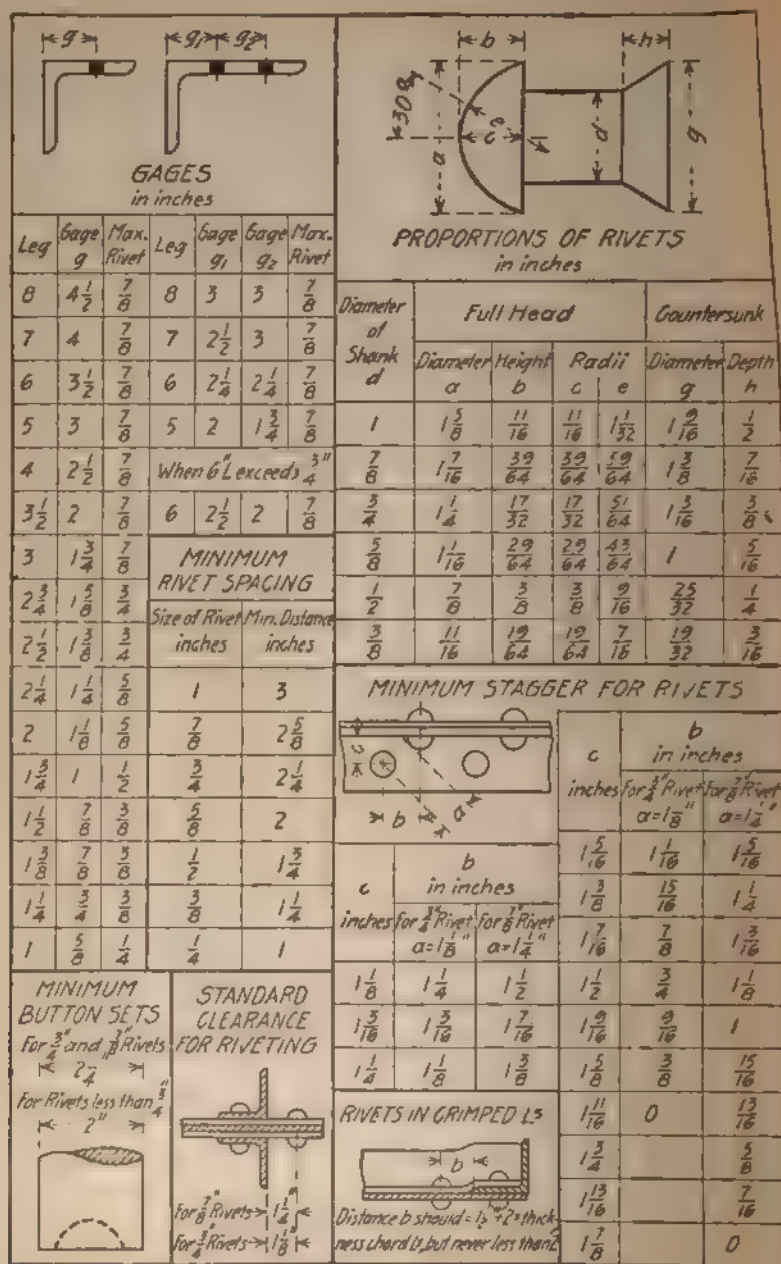 g g₁ g₂
GAGES
in inches
Leg Gage g Max. Rivet Leg Gage g₁ Gage g₂ Max. Rivet
8 4 1/2 7/8 8 3 3 7/8
7 4 7/8 7 2 1/2 3 7/8
6 3 1/2 7/8 6 2 1/4 2 1/4 7/8
5 3 7/8 5 2 1 3/4 7/8
4 2 1/2 7/8 When 6" L exceeds 3/4"
3 1/2 2 7/8 6 2 1/2 2 7/8
3 1 3/4 7/8
2 3/4 1 5/8 3/4
2 1/2 1 3/8 3/4
2 1/4 1 1/4 5/8
2 1 1/8 5/8
1 3/4 1 1/2
1 1/2 7/8 3/8
1 3/8 7/8 3/8
1 1/4 3/4 3/8
1 5/8 1/4
MINIMUM
RIVET SPACING
Size of Rivet Min. Distance
inches inches
1 3
7/8 2 5/8
3/4 2 1/4
5/8 2
1/2 1 3/4
3/8 1 1/4
1/4 1
MINIMUM
BUTTON SETS
For 3/4" and 7/8" Rivets
2 1/4"
For Rivets less than 3/4"
2"
STANDARD
CLEARANCE
FOR RIVETING
For 7/8" Rivets 1 1/4"
For 3/4" Rivets 1 1/8"
b h
a e c d g
PROPORTIONS OF RIVETS
in inches
Diameter of Shank d Full Head Countersunk
Diameter a Height b Radii c e Diameter g Depth h
1 1 5/8 11/16 11/16 1 1/32 1 9/16 1/2
7/8 1 7/16 39/64 39/64 59/64 1 3/8 7/16
3/4 1 1/4 17/32 17/32 51/64 1 3/16 3/8
5/8 1 1/16 29/64 29/64 43/64 1 5/16
1/2 7/8 3/8 3/8 9/16 25/32 1/4
3/8 11/16 19/64 19/64 7/16 19/32 3/16
MINIMUM STAGGER FOR RIVETS
c
b a
c b
inches in inches
for 3/4" Rivet a=1 1/8" for 7/8" Rivet a=1 1/4"
1 1/8 1 1/4 1 1/2
1 3/16 1 3/16 1 7/16
1 1/4 1 1/8 1 3/8
c b
inches in inches
for 3/4" Rivet a=1 1/8" for 7/8" Rivet a=1 1/4"
1 5/16 1 1/16 1 5/16
1 3/8 15/16 1 1/4
1 7/16 7/8 1 3/16
1 1/2 3/4 1 1/8
1 9/16 9/16 1
1 5/8 3/8 15/16
1 11/16 0 13/16
1 3/4 5/8
1 13/16 7/16
1 7/8 0
RIVETS IN CRIMPED Ls
b
Distance b should = 1 1/2" + 2 × thick-
ness chord Ls, but never less than 2"